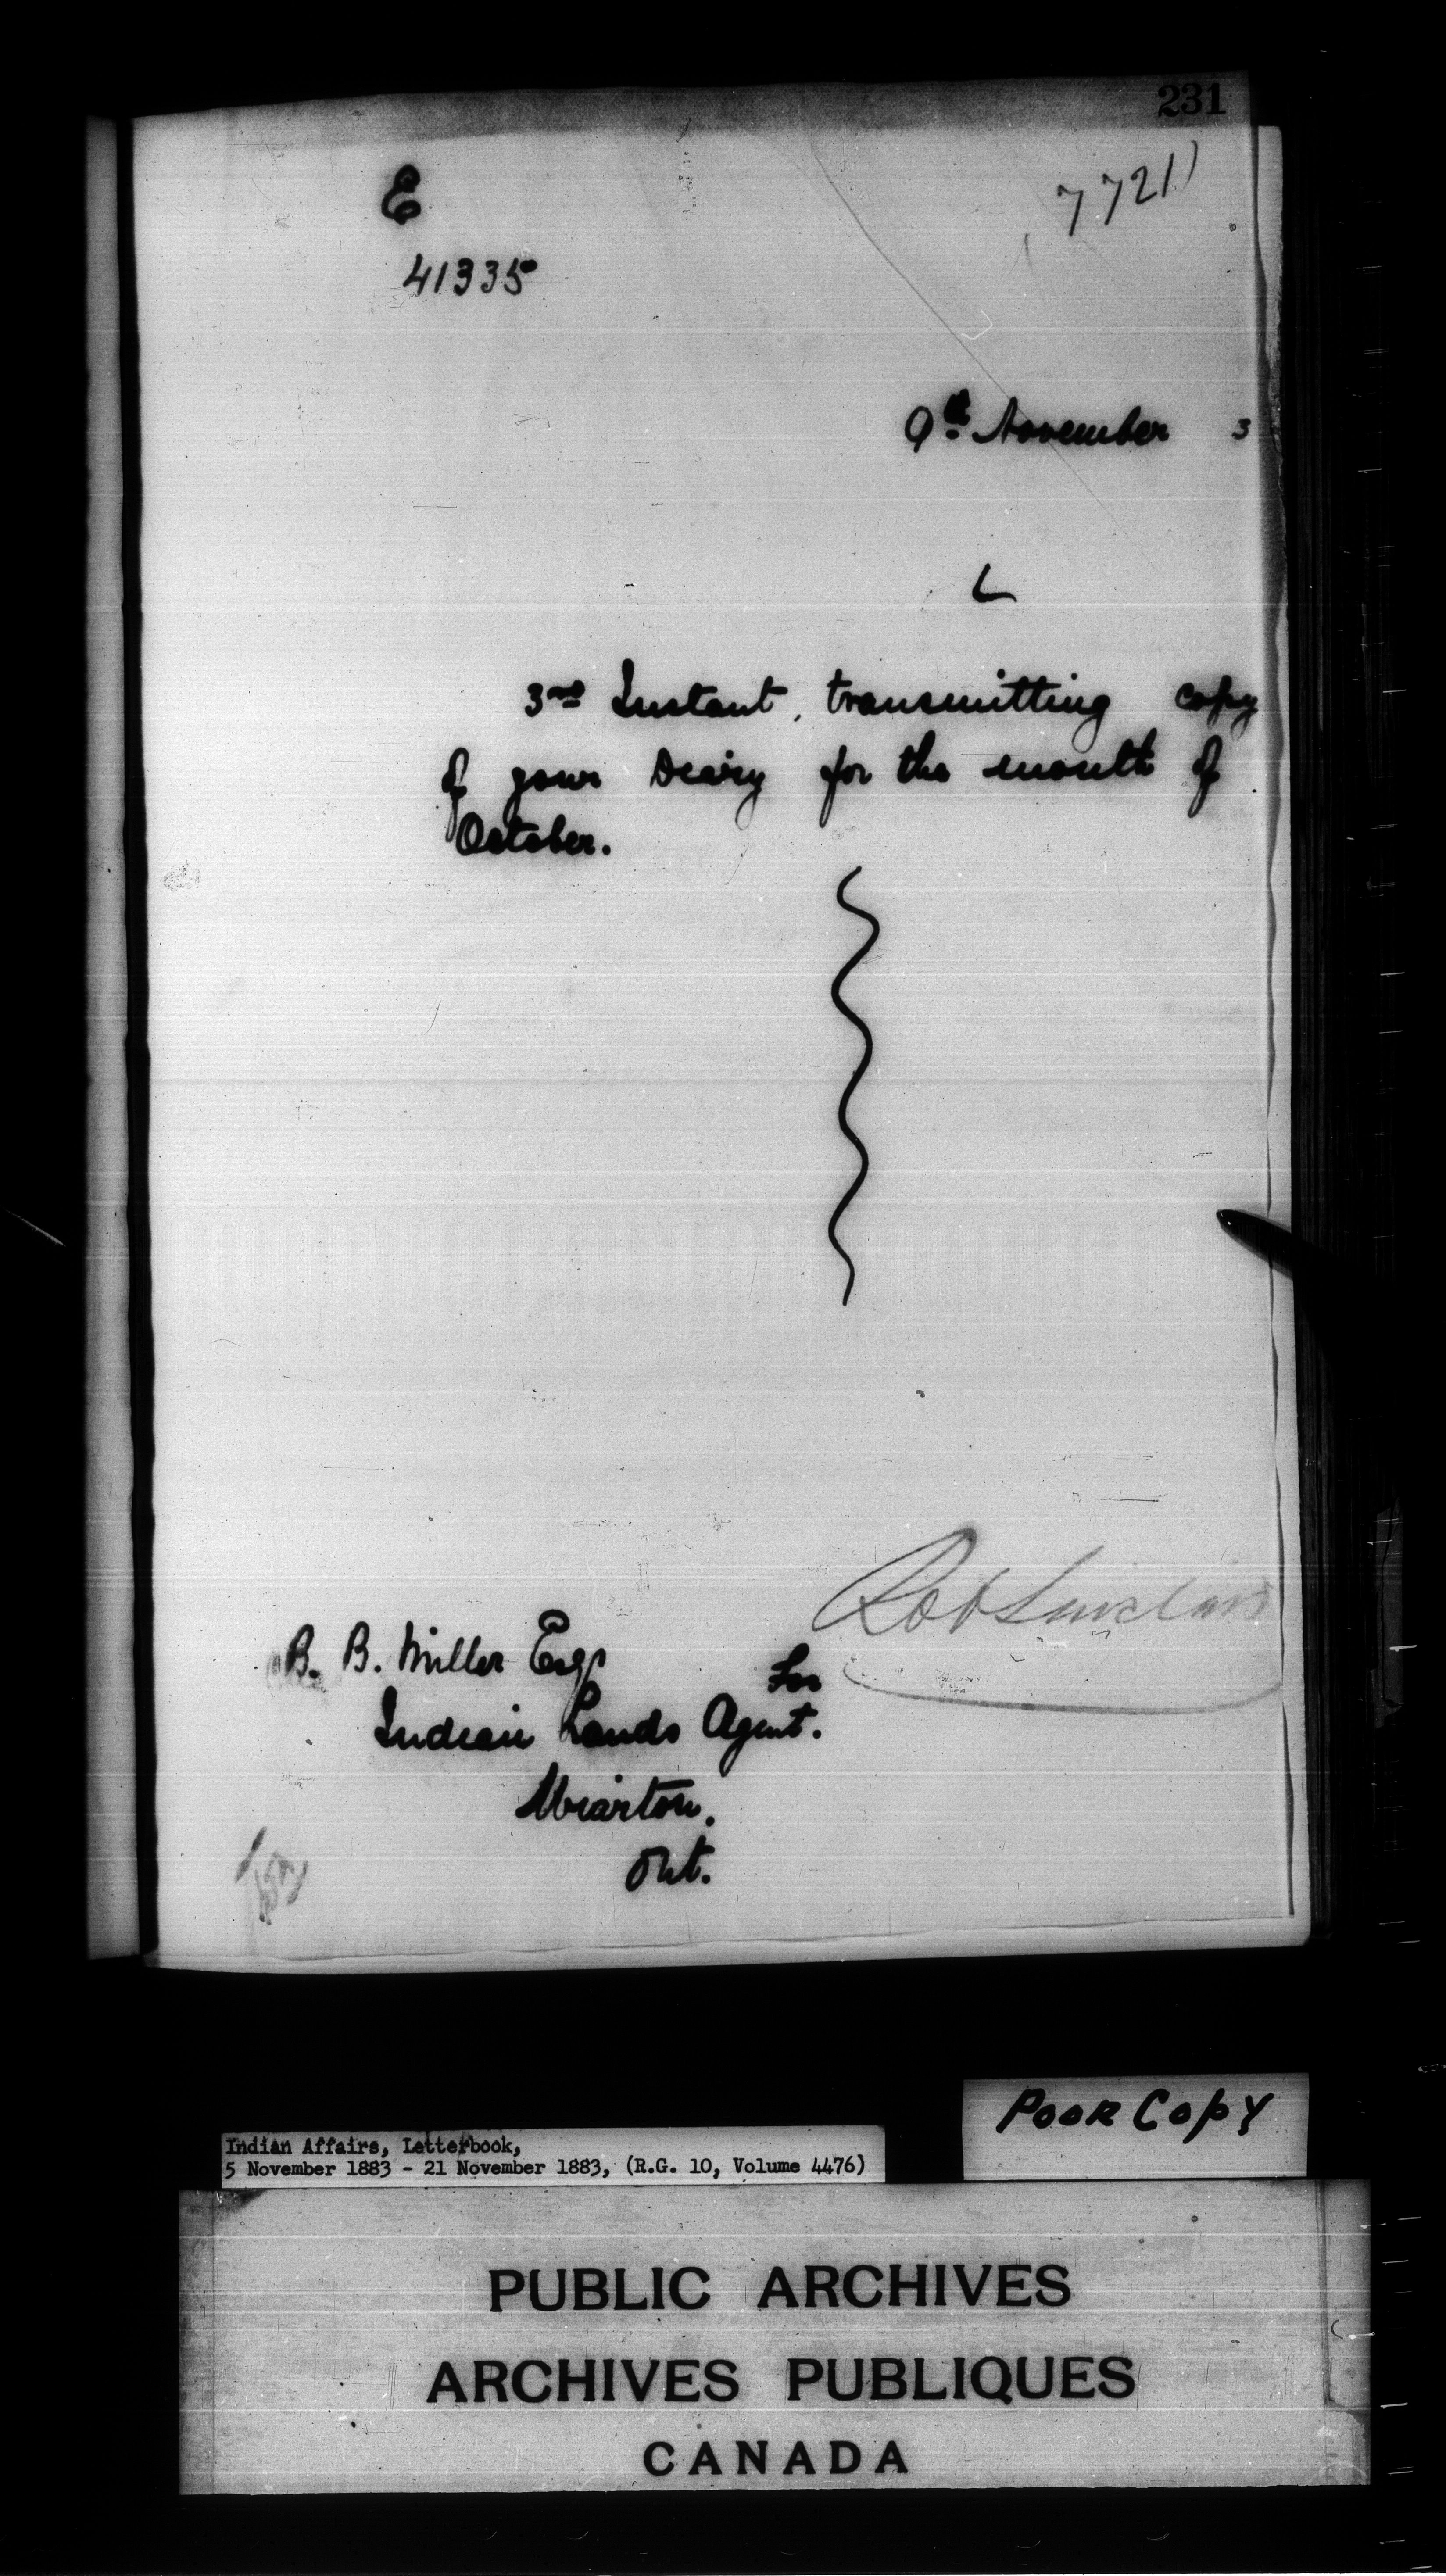 231
7721
E
41335
9th November 3
L
3rd Instant, transmitting copy
of your Diary for the month of
October.
Rob Sinclair
B. B. Miller Esqr
for
Indian Lands Agent.
Wiarton.
Ont.
Poor Copy
Indian Affairs, Letterbook,
5 November 1883 - 21 November 1883, (R.G. 10, Volume 4476)
PUBLIC ARCHIVES
ARCHIVES PUBLIQUES
CANADA